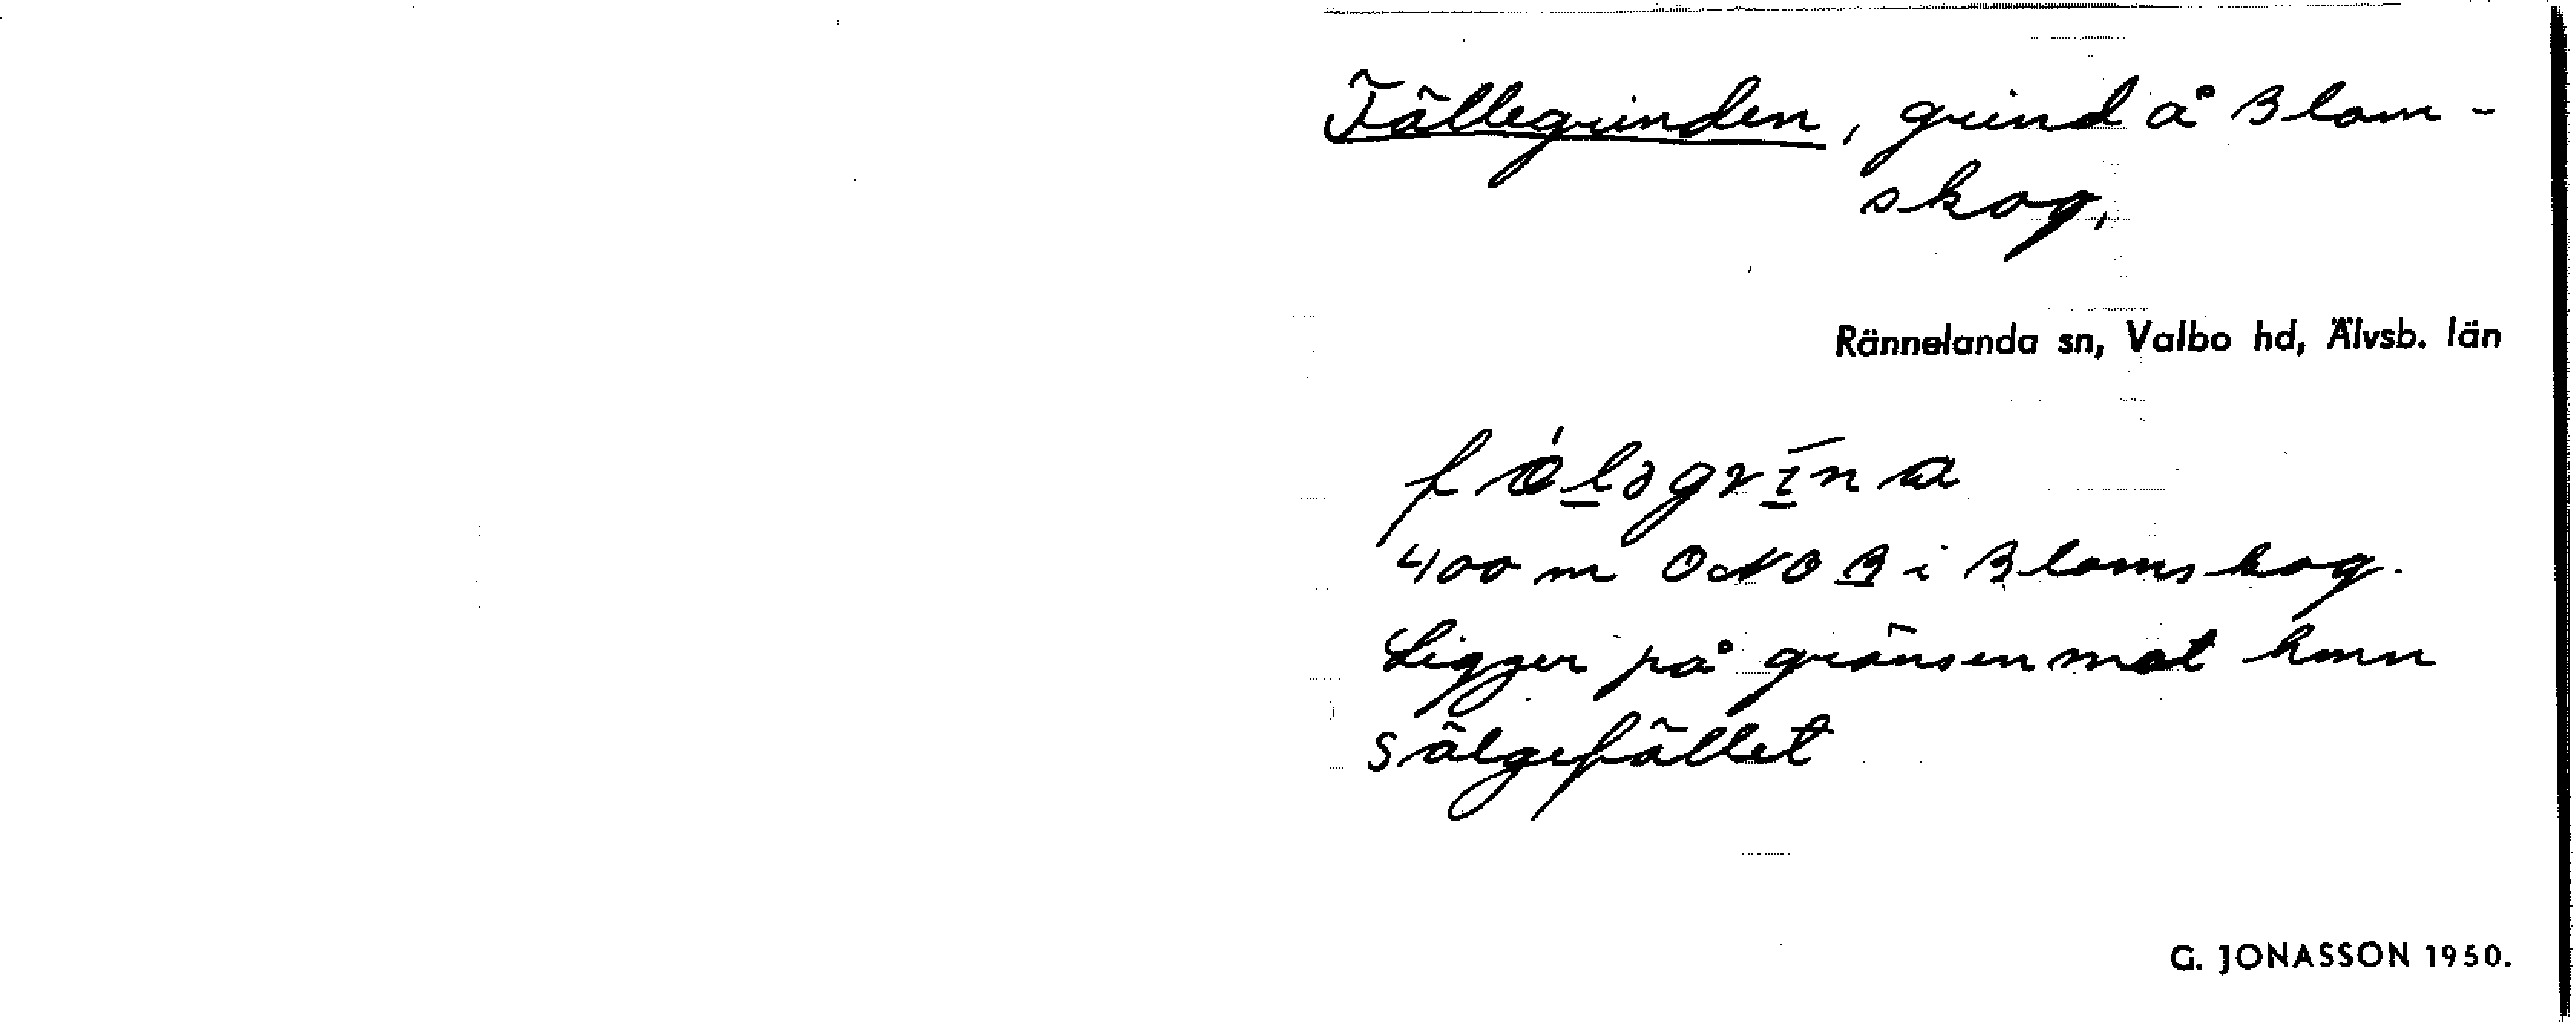 Fällegrinden, grind å Blom-
skog.
Rännelanda sn, Valbo hd, Älvsb. län
400 m ONO B i Blomskog.
Ligger på gränsen mot hmn
Sälgefället
G. JONASSON 1950.